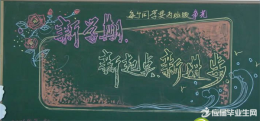 新学期
新起点 新进步
应届毕业生网